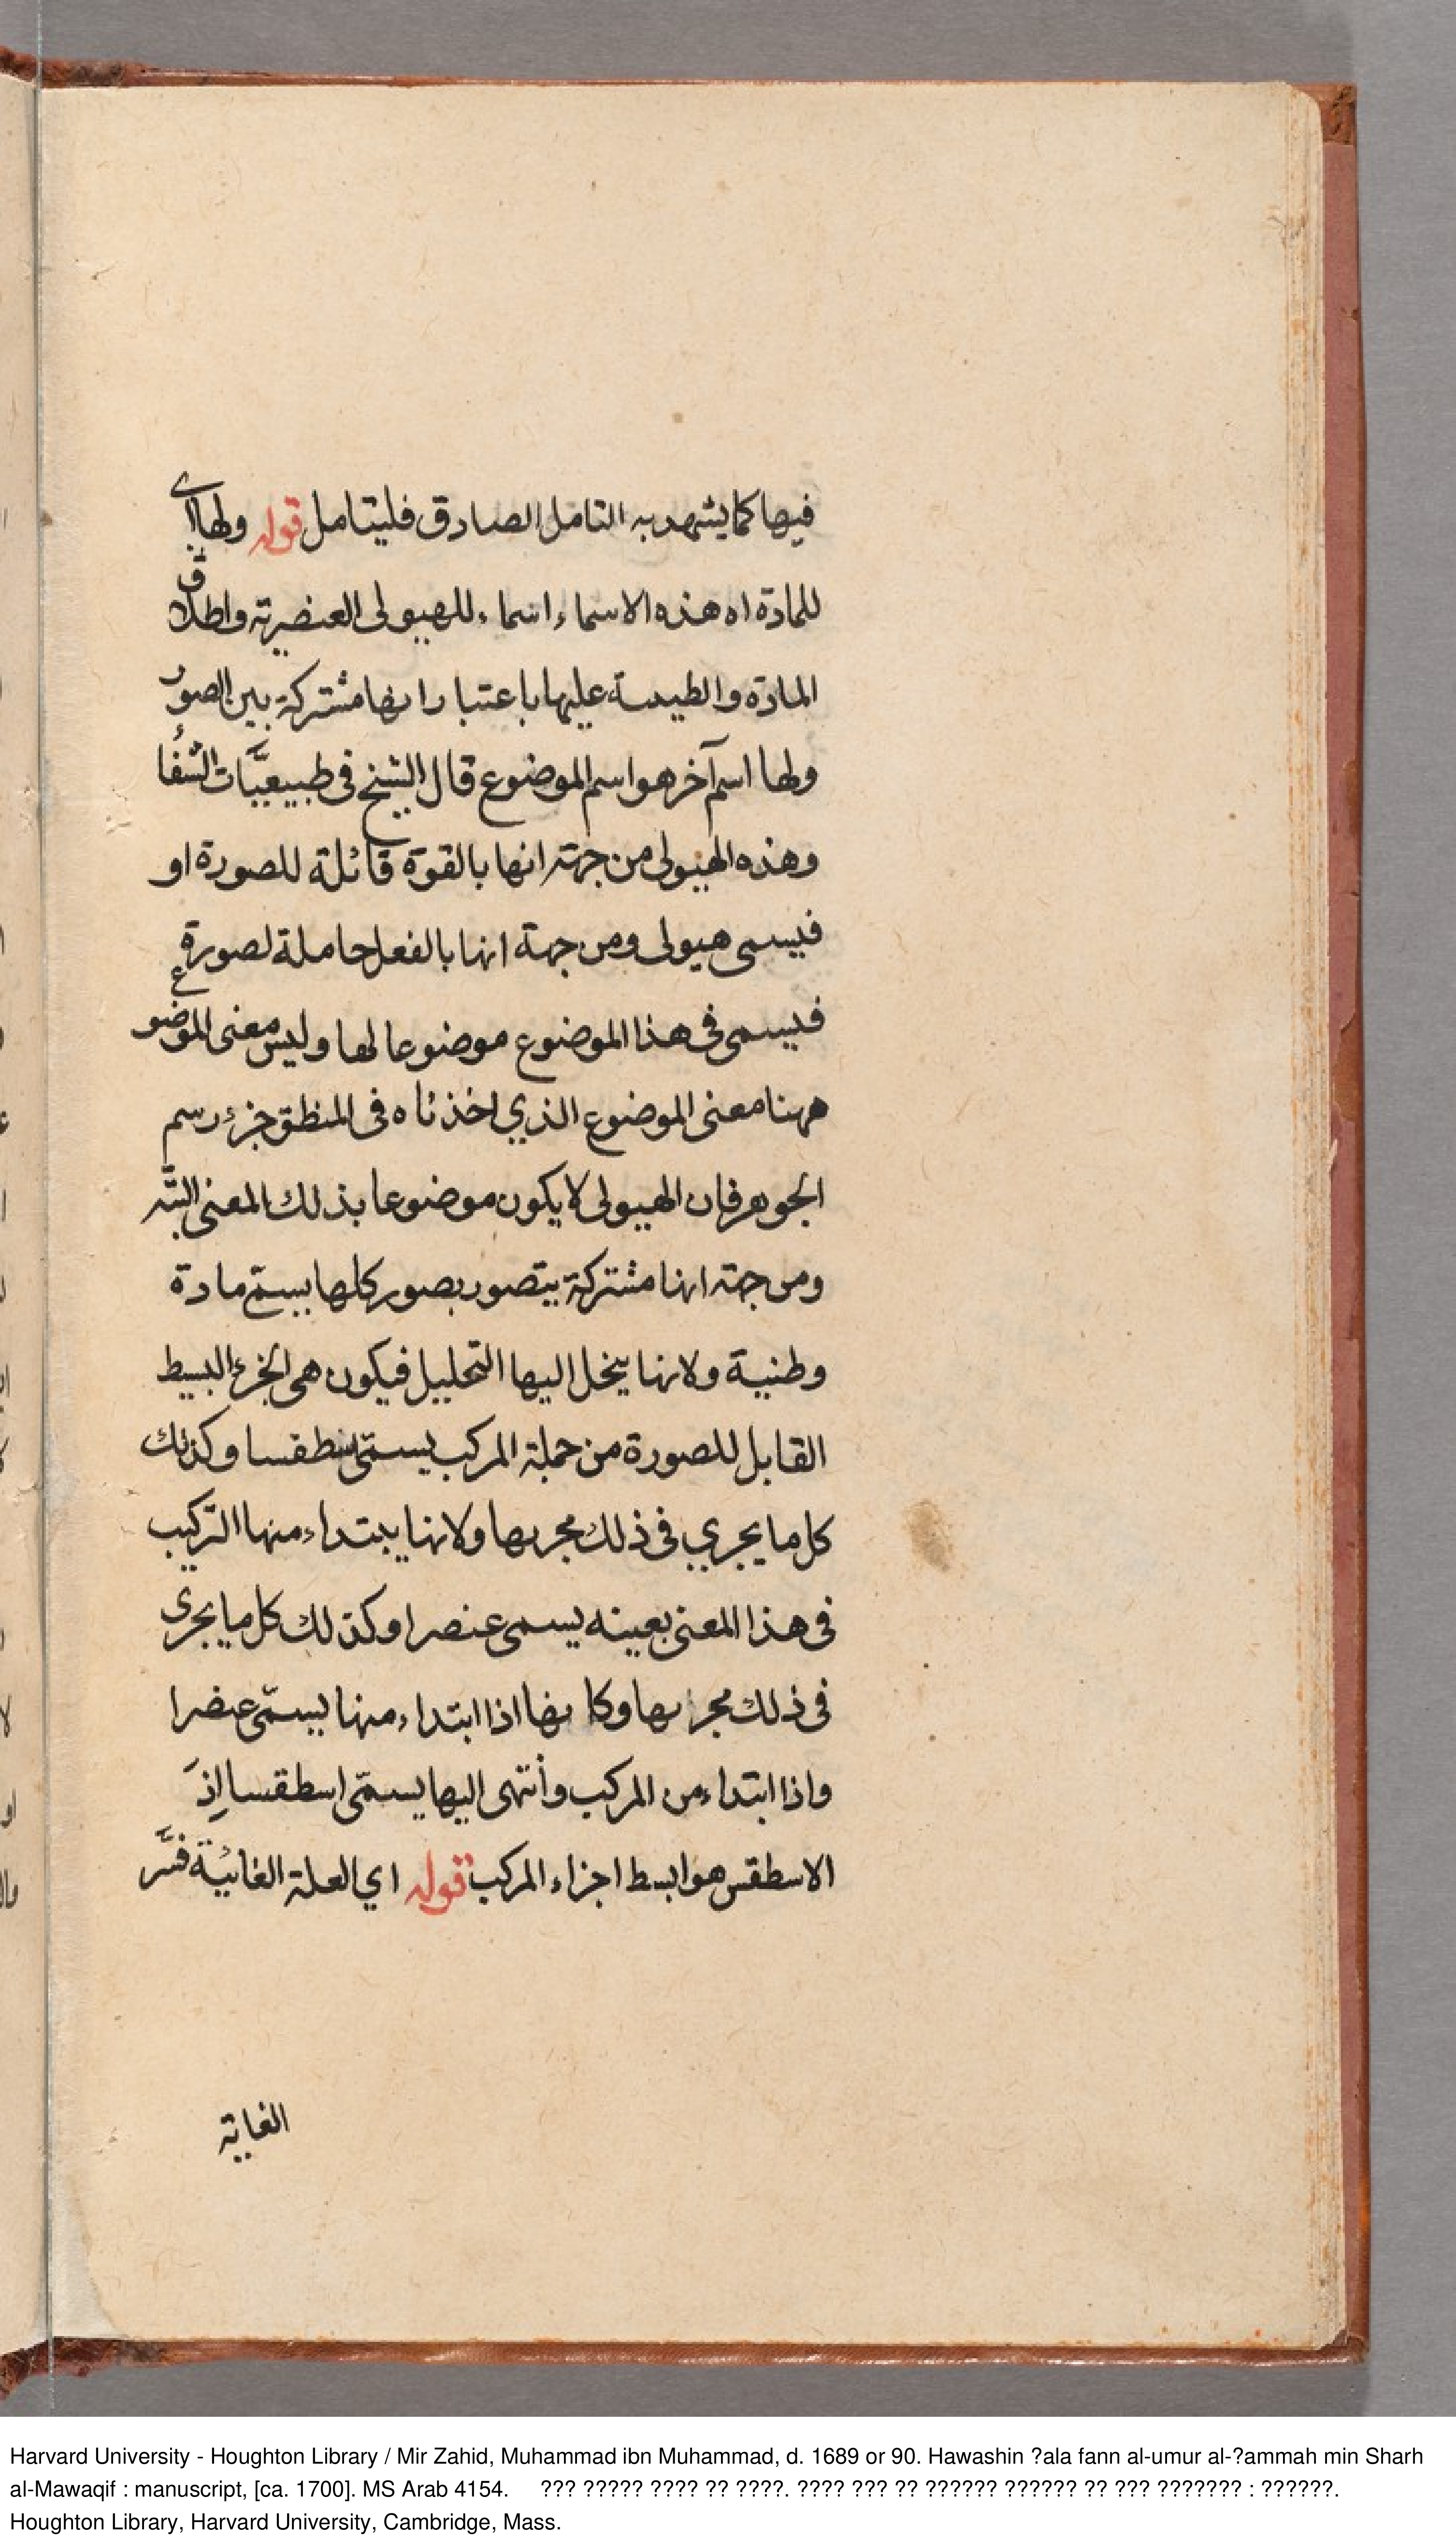 فيها كما يشهد به التامل الصادق فليتامل قوله ولها اى
للمادة اه هذه الاسماء اسماء للهيولى العنصرية واطلاق
المادة والطينة عليها باعتبار انها مشتركة بين الصور
ولها اسم آخر هو اسم الموضوع قال الشيخ فى طبيعيّات الشفا
وهذه الهيولى من جهة انها بالقوة قائلة للصورة او
فيسمى هيولى ومن جهة انها بالفعل حاملة لصورة
فيسمى فى هذا الموضوع موضوعا لها وليس معنى الموضوع
ههنا معنى الموضوع الذي اخذناه فى المنطق جزء رسم
الجوهر فان الهيولى لا يكون موضوعا بذلك المعنى البتّه
ومن جهة انها مشتركة يتصور بصور كلها يسمّ مادة
وطنية ولانها ينحل اليها التحليل فيكون هى الجزء البسيط
القابل للصورة من جملة المركب يسمّى اسطقسا وكذلك
كل ما يجري فى ذلك مجريها ولانها يبتداء منها التركيب
فى هذا المعنى بعينه يسمى عنصرا وكذلك كل ما يجرى
فى ذلك مجريها وكانها اذا ابتداء منها يسمّى عنصرا
واذا ابتداء من المركب وأنتهى اليها يسمّى اسطقسا اِذَ
الاسطقس هو ابسط اجزاء المركب قوله اي العلة الغائيّة فسَّر
الغاية
Harvard University - Houghton Library / Mir Zahid, Muhammad ibn Muhammad, d. 1689 or 90. Hawashin ?ala fann al-umur al-?ammah min Sharh
al-Mawaqif : manuscript, [ca. 1700]. MS Arab 4154. ??? ????? ???? ?? ????. ???? ??? ?? ?????? ?????? ?? ??? ??????? : ??????.
Houghton Library, Harvard University, Cambridge, Mass.